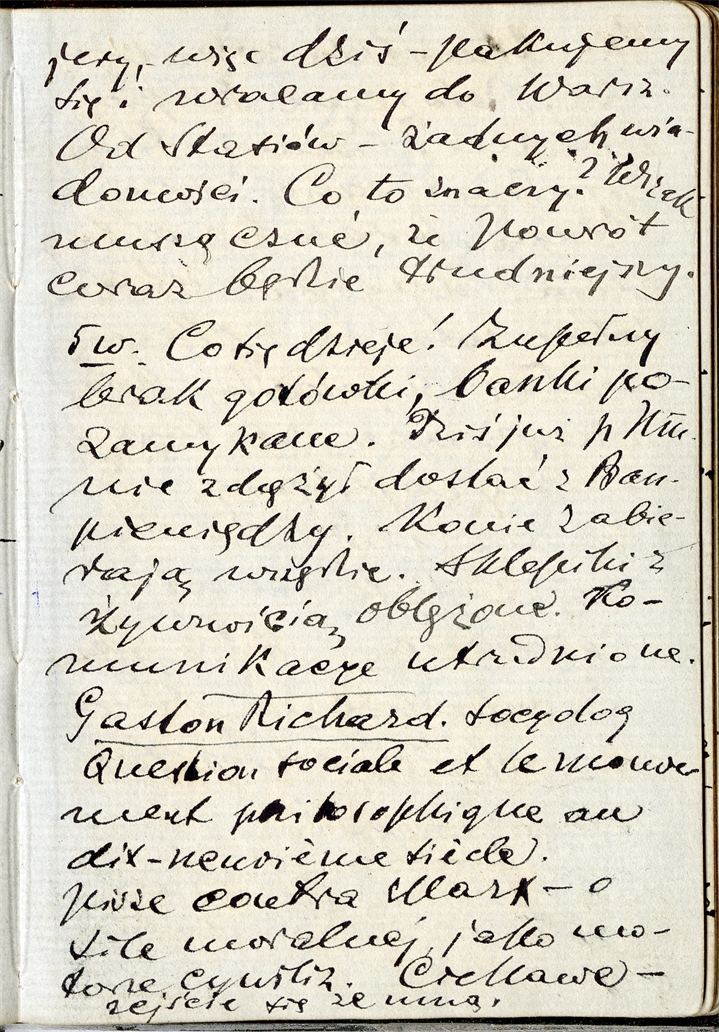 jery, więc dziś – pakujemy
się i wracamy do Warsz.
Od Stasiów – żadnych wia-
domości. Co to znaczy? Wszak
muszą czuć, że powrót
coraz będzie trudniejszy.
5 w. Co się dzieje! Zupełny
brak gotówki, banki po-
zamykane. Dziś już p
nie zdążył dostać z Ban.
pieniędzy. Konie zabie-
rają wszędzie. Sklepiki z
żywnością oblężone. Ko-
munikacye utrudnione.
Gaston Richard. socyolog
Question sociale et le mouve-
ment philosophique au
dix-neuvième siècle.
pisze contra Marx – o
sile moralnej, jako mo-
torze cywiliz. Ciekawe –
zejście się ze mną.